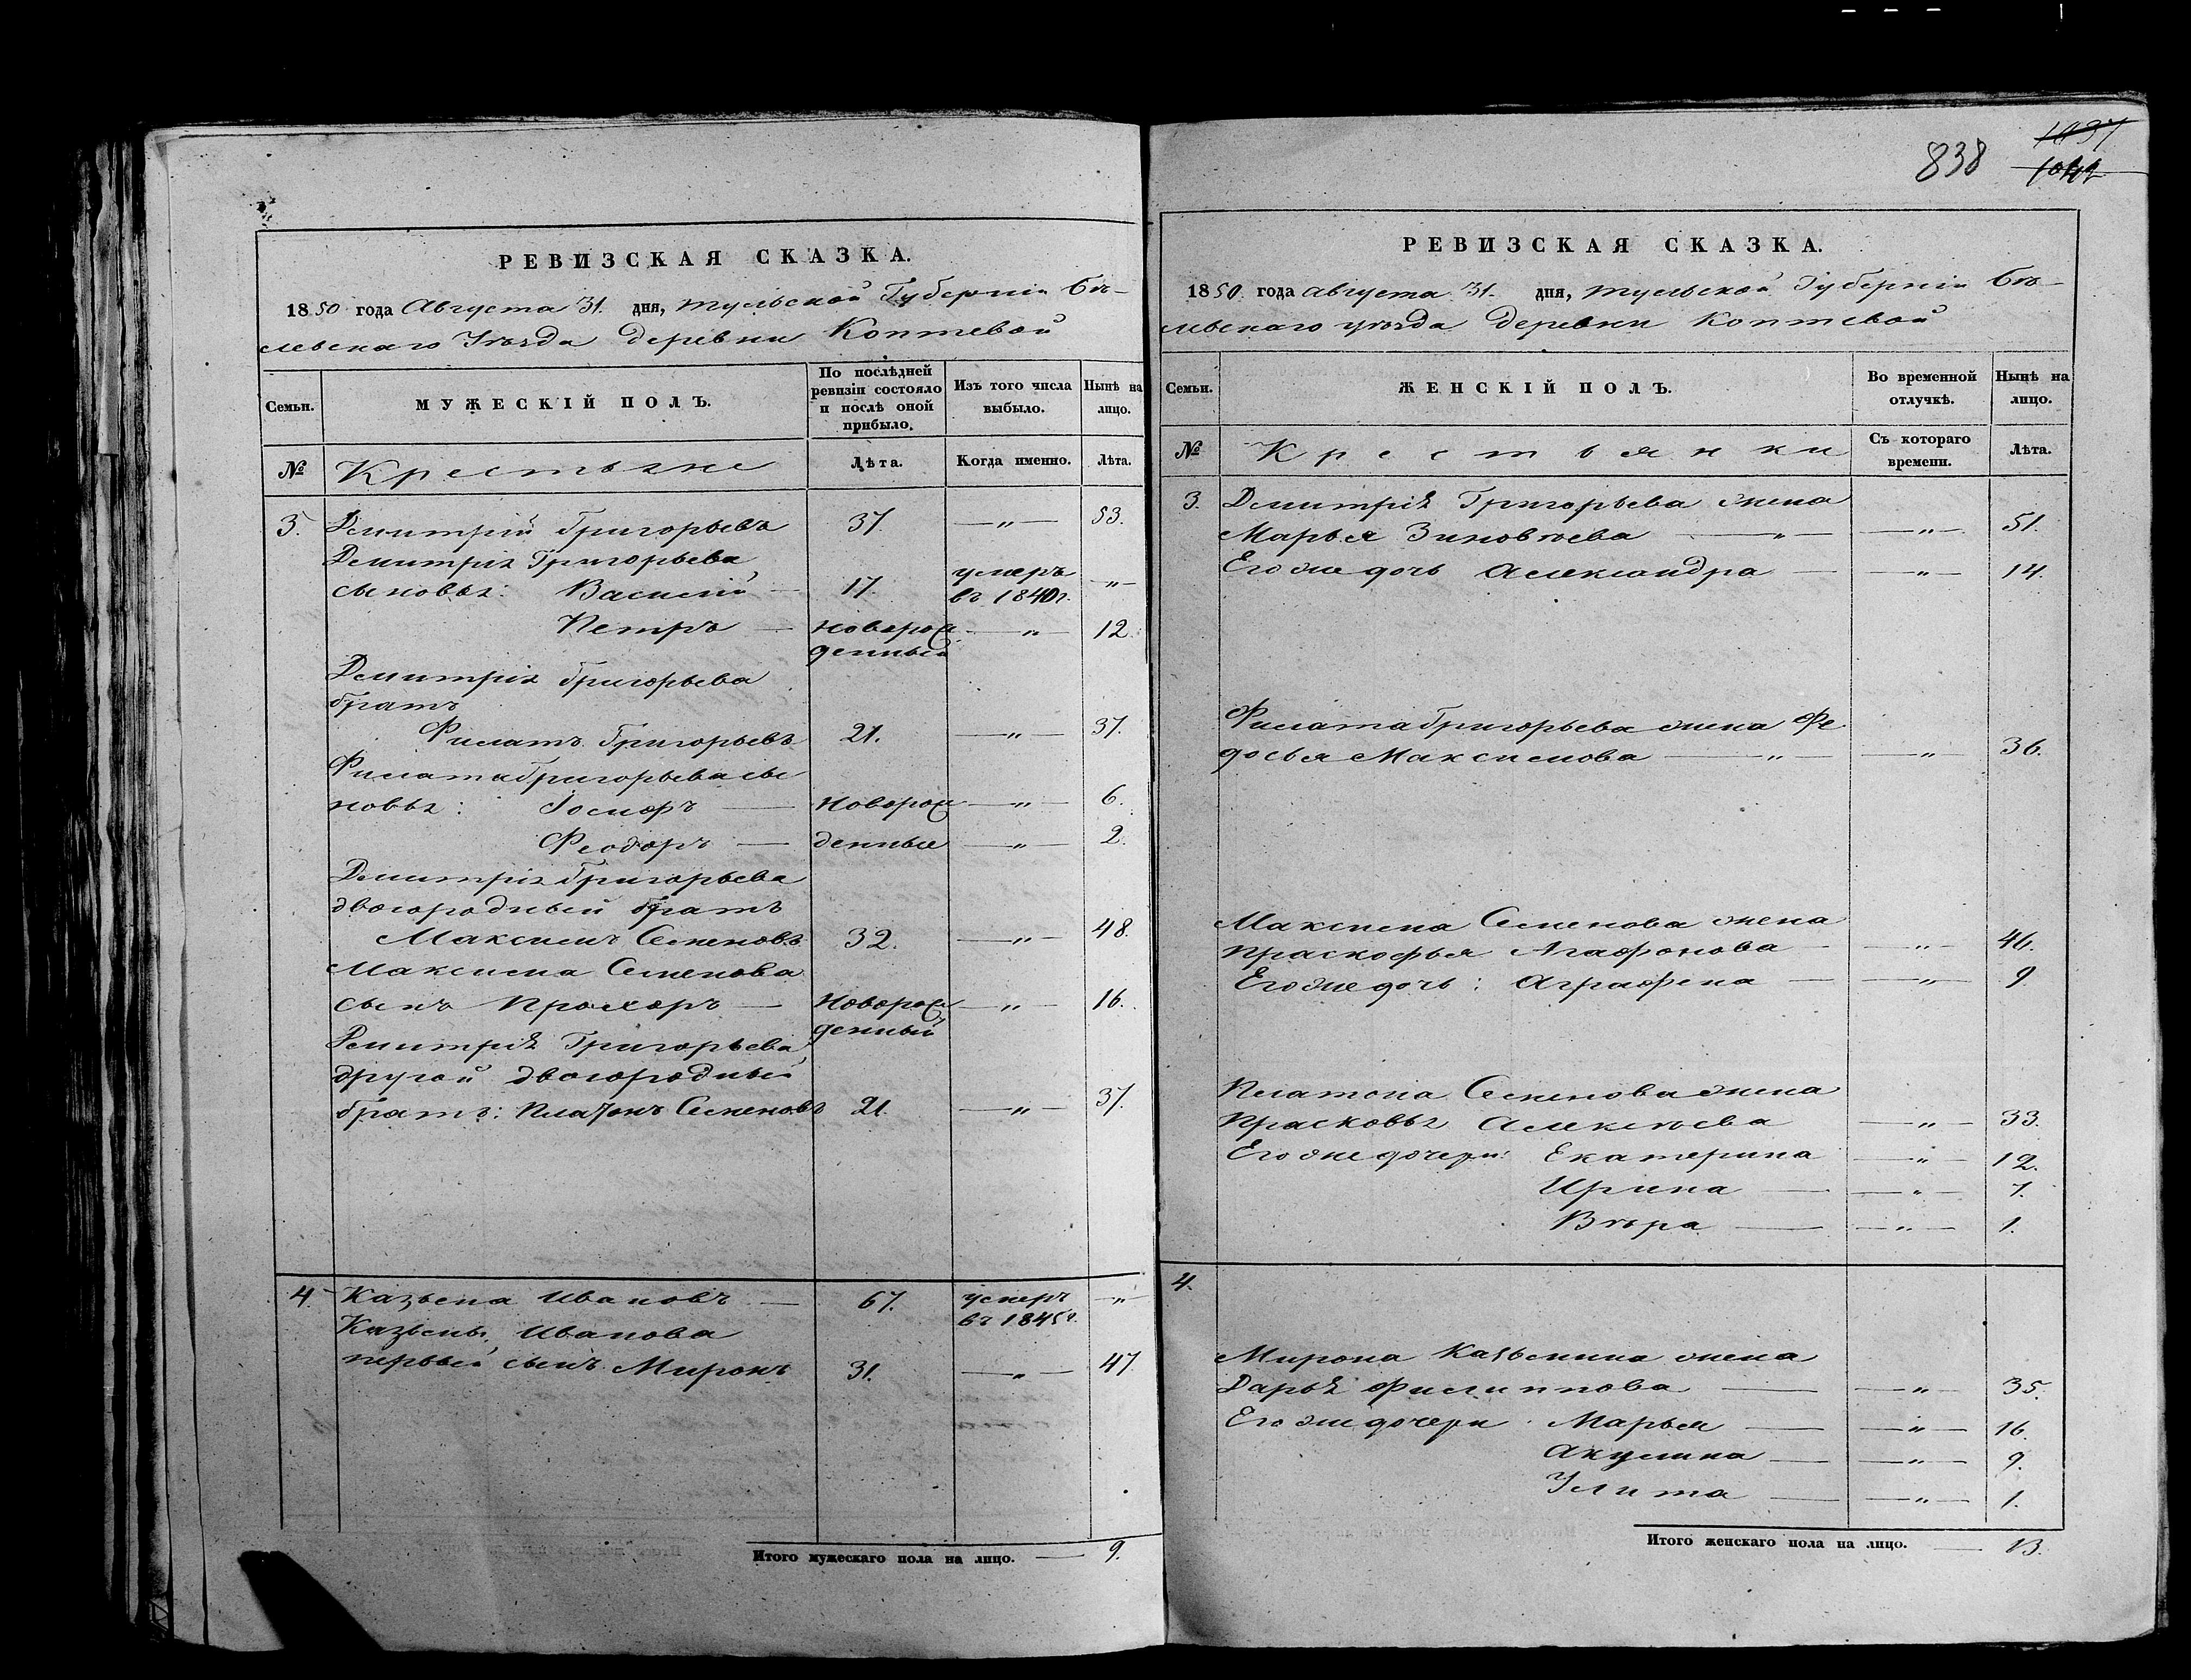 838
1037
1044
РЕВИЗСКАЯ СКАЗКА.
1850 года Августа 31. дня, Тульской Губерніи Бѣ-
левскаго Уѣзда деревни Коптевой
Семьи.
МУЖЕСКІЙ ПОЛЪ.
По послѣдней
ревизіи состояло
и послѣ оной
прибыло.
Изъ того числа
выбыло.
Нынѣ на
лицо.
№ Крестьяне Лѣта. Когда именно. Лѣта.
3. Дмитрій Григорьевъ 37. —„— 53.
Дмитрія Григорьева
сыновья: Василій — 17. умеръ въ 1840г. „
Петръ — новорож —„— 12.
денный
Дмитрія Григорьева
братъ
Филатъ Григорьевъ 21. —„— 37.
Филата Григорьева сы
новья: Іосифъ — новорож —„— 6.
Феодоръ — денные —„— 2.
Дмитрія Григорьева
двоюродный братъ
Максимъ Семеновъ 32. —„— 48.
Максима Семенова
сынъ Прохоръ — новорож —„— 16.
денный
Дмитрія Григорьева
другой двоюродный
братъ: Платонъ Семеновъ 21. —„— 37.
4. Казьема Ивановъ — 67. умеръ въ 1845г. —„—
Казьмы Иванова
первый сынъ Миронъ 31. —„— 47.
Итого мужескаго пола на лицо. — 9.
РЕВИЗСКАЯ СКАЗКА.
1850. года Августа 31. дня, Тульской Губерніи Бѣ-
левскаго уѣзда деревни Коптевой
Семьи.
ЖЕНСКІЙ ПОЛЪ.
Во временной
отлучкѣ.
Нынѣ на
лицо.
№ Крестьянки
Съ котораго
времени.
Лѣта.
3. Дмитрія Григорьева жена
Марья Зиновѣева —„— —„— 51.
Его же дочь Александра — —„— 14.
Филата Григорьева жена Фе
досья Максимова —„— —„— 36.
Максима Семенова жена
Прасковья Агафонова — —„— 46.
Его же дочь: Аграфена — —„— 9
Платона Семенова жена
Прасковья Алексѣева —„— 33.
Его же дочери: Екатерина —„— 12.
Ирина — —„— 7.
Вѣра — —„— 1.
4.
Мирона Казьмина жена
Дарья Филиппова — —„— 35.
Его же дочери: Марья — —„— 16.
Акулина — —„— 9.
Улита — —„— 1.
Итого женскаго пола на лицо. — 13.